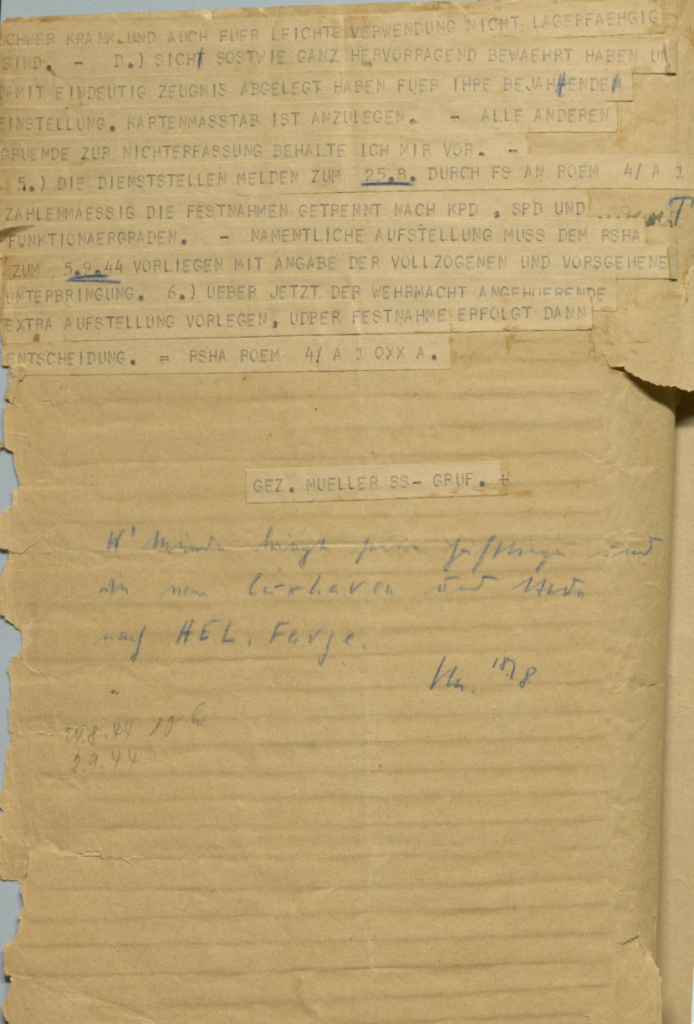 SCHWER KRANK UND AUCH FUER LEICHTE VERWENDUNG NICHT LAGERFAEHGIG
SIND. - D.) SICH SOSTWIE GANZ HERVORRAGEND BEWAEHRT HABEN UN
DAMIT EINDEUTIG ZEUGNIS ABGELEGT HABEN FUER IHRE BEJAHENDE
EINSTELLUNG. KARTENMASSTAB IST ANZULEGEN. - ALLE ANDEREN
GRUENDE ZUR NICHTERFASSUNG BEHALTE ICH MIR VOR. -
5.) DIE DIENSTSTELLEN MELDEN ZUM 25.8. DURCH FS AN ROEM 4/ A 1
ZAHLENMAESSIG DIE FESTNAHMEN GETRENNT NACH KPD . SPD UND
FUNKTIONAERGRADEN. - NAMENTLICHE AUFSTELLUNG MUSS DEM RSHA
ZUM 5.9.44 VORLIEGEN MIT ANGABE DER VOLLZOGENEN UND VORSGEHENE
UNTERBRINGUNG. 6.) UEBER JETZT DER WEHRMACHT ANGEHOERENDE
EXTRA AUFSTELLUNG VORLEGEN, UDBER FESTNAHME ERFOLGT DANN
ENTSCHEIDUNG. = RSHA ROEM 4/ A 1 OXX A.
GEZ. MUELLER SS- GRUF. +
W' Münde bringt seine Häftlinge und
die von Cuxhaven und Stade
nach HEL. Farge.
18/8.
24.8.44 10 h
2.9.44